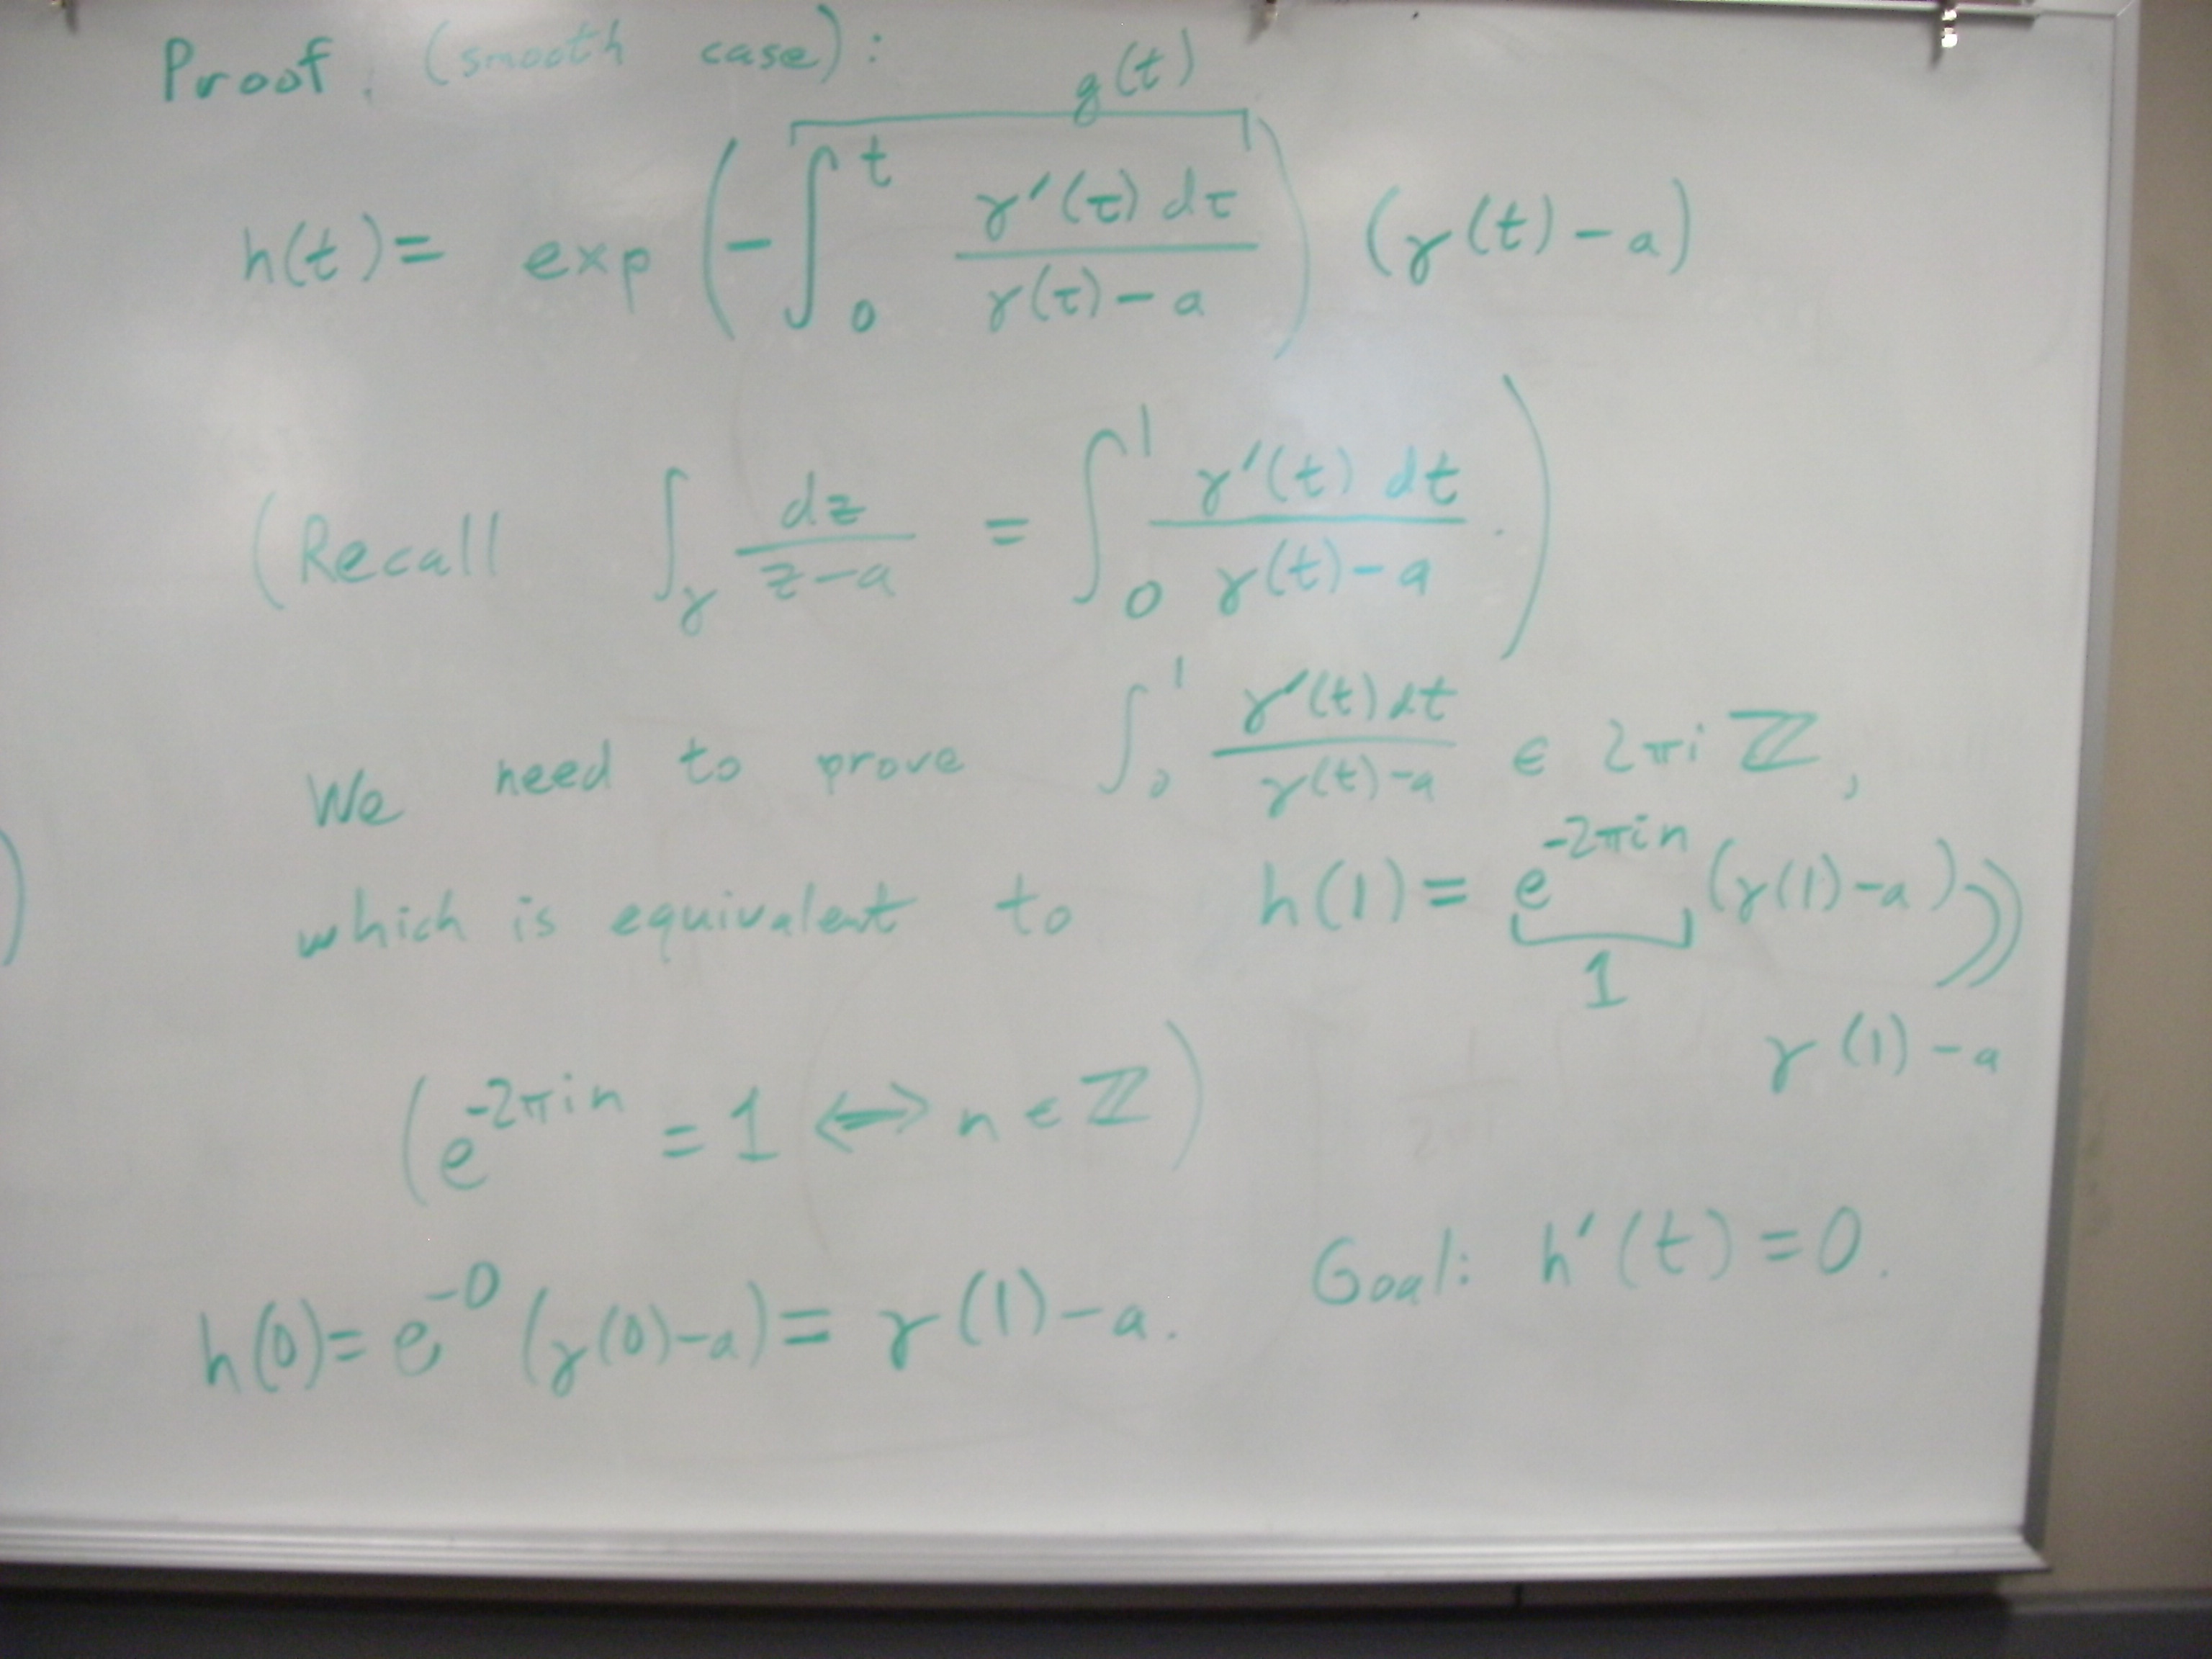 Proof. (smooth case):
g(t)
h(t) = exp (-∫₀ᵗ γ'(τ) dτ / γ(τ) - a) (γ(t) - a)
(Recall ∫_γ dz / z - a = ∫₀¹ γ'(t) dt / γ(t) - a .)
We need to prove ∫₀¹ γ'(t) dt / γ(t) - a ∈ 2πi ℤ,
which is equivalent to h(1) = e^{-2πin} (γ(1) - a)))
1
γ(1) - a
(e^{-2πin} = 1 ⟺ n ∈ ℤ)
Goal: h'(t) = 0.
h(0) = e^{-0} (γ(0) - a) = γ(1) - a.
)